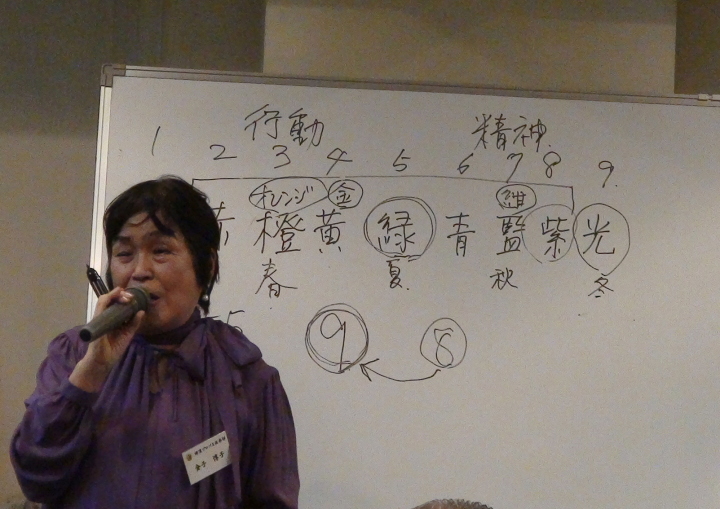 行動 精神
1 2 3 4 5 6 7 8 9.
オレンジ 金 紺
赤 橙 黄 緑 青 藍 紫 光
春 夏 秋 冬
5 9 8
金子